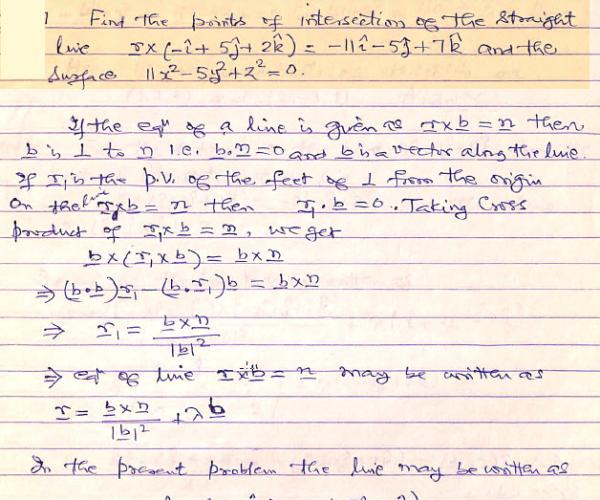 1 Find the points of intersection of the straight
line r×(-î+5ĵ+2k̂) = -11î-5ĵ+7k̂ and the
surface 11x²-5y²+z²=0.
If the eqⁿ of a line is given as r×b = n then
b is ⊥ to n i.e. b.n=0 and b is a vector along the line.
If r₁ is the p.v. of the feet of ⊥ from the origin
on the line r×b = n then r₁.b=0. Taking Cross
product of r₁×b = n, we get
b×(r₁×b) = b×n
⇒ (b.b)r₁-(b.r₁)b = b×n
⇒ r₁ = b×n / |b|²
⇒ eqⁿ of line r×b = n may be written as
r = b×n / |b|² + λb
In the present problem the line may be written as